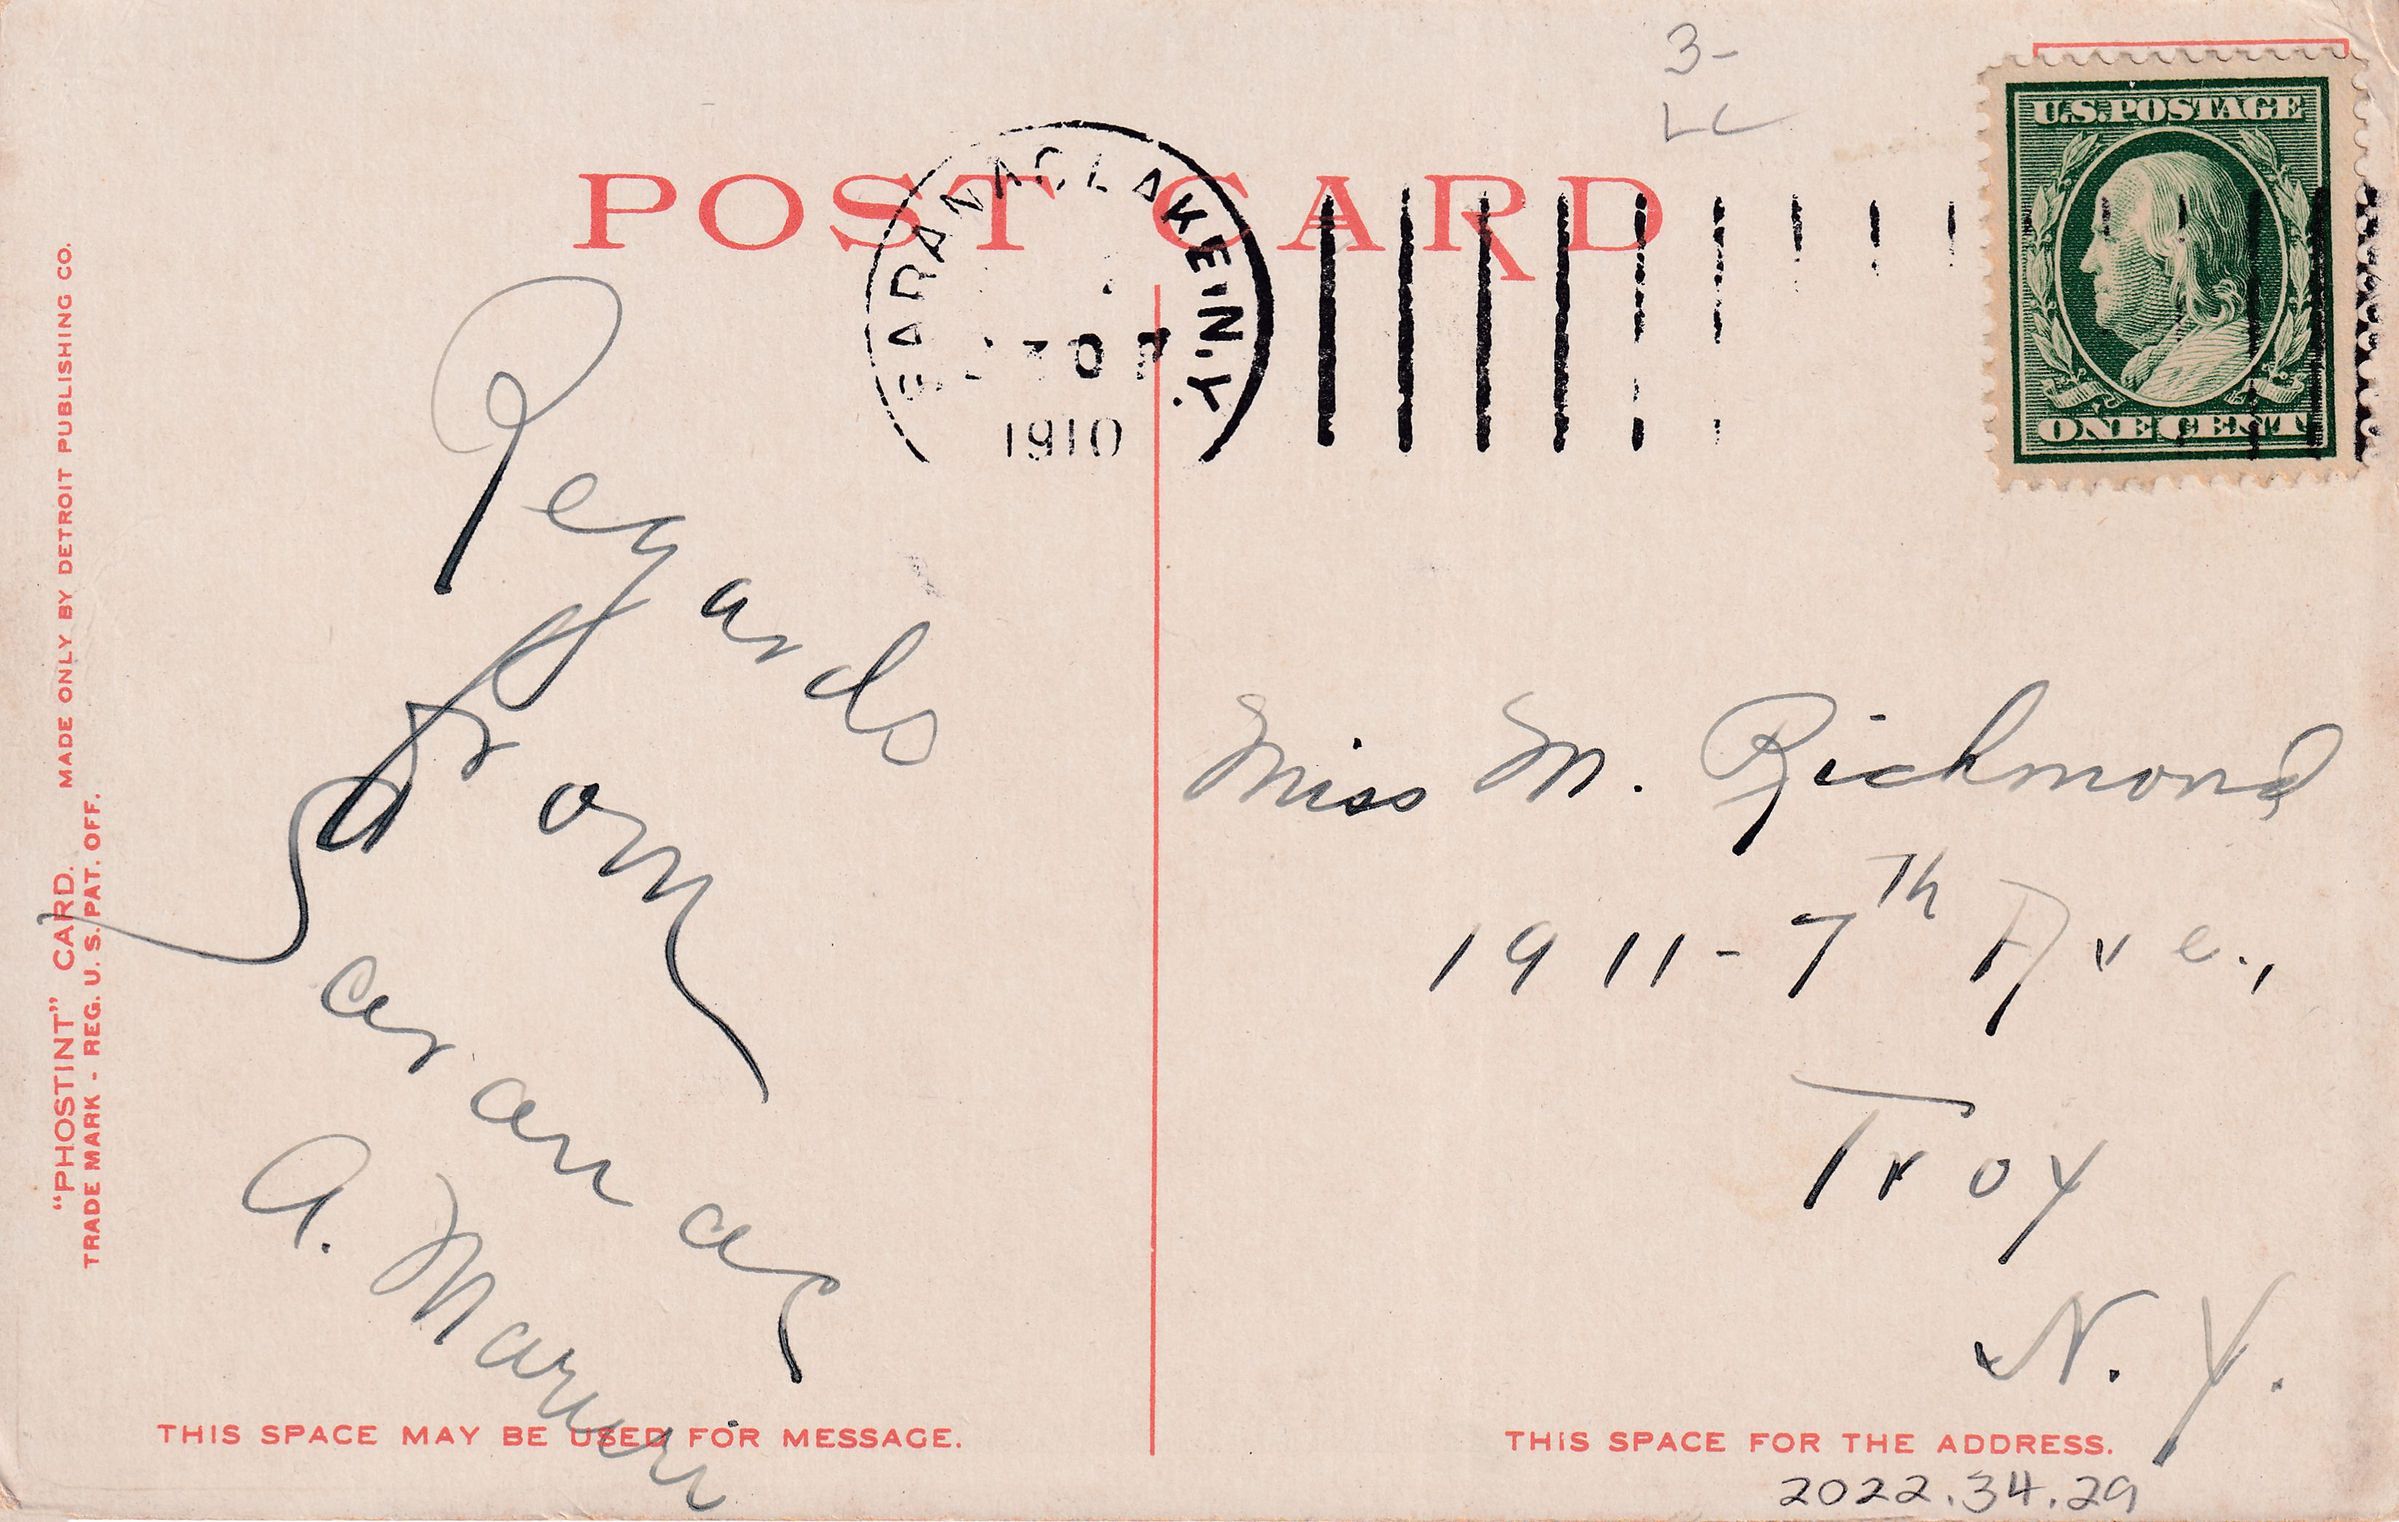 3-
LC
U.S. POSTAGE
ONE CENT
POST CARD
SARANAC LAKE, N.Y.
1910
"PHOSTINT" CARD. MADE ONLY BY DETROIT PUBLISHING CO.
TRADE MARK - REG. U. S. PAT. OFF.
Regards
from
Saranac
A.
Miss M. Richmond
1911 - 7th Ave.,
Troy
N. Y.
THIS SPACE MAY BE USED FOR MESSAGE.
THIS SPACE FOR THE ADDRESS.
2022.34.29